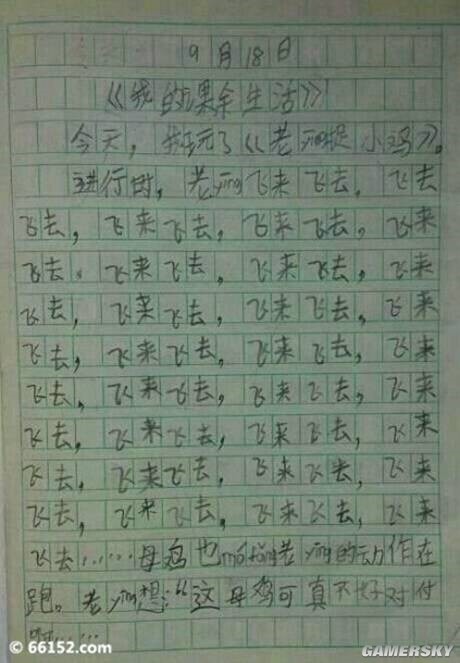 9月18日
《我的课余生活》
今天，我玩了《老ying捉小鸡》。
进行时，老ying飞来飞去，飞去
飞去，飞来飞去，飞来飞去，飞来
飞去，飞来飞去，飞来飞去，飞来
飞去，飞来飞去，飞来飞去，飞来
飞去，飞来飞去，飞来飞去，飞来
飞去，飞来飞去，飞来飞去，飞来
飞去，飞来飞去，飞来飞去，飞来
飞去，飞来飞去，飞来飞去，飞来
飞去，飞来飞去，飞来飞去，飞来
飞去……母鸡也mofang老ying的动作在
跑。老ying想：“这母鸡可真不好对付
啊……
© 66152.com
GAMERSKY